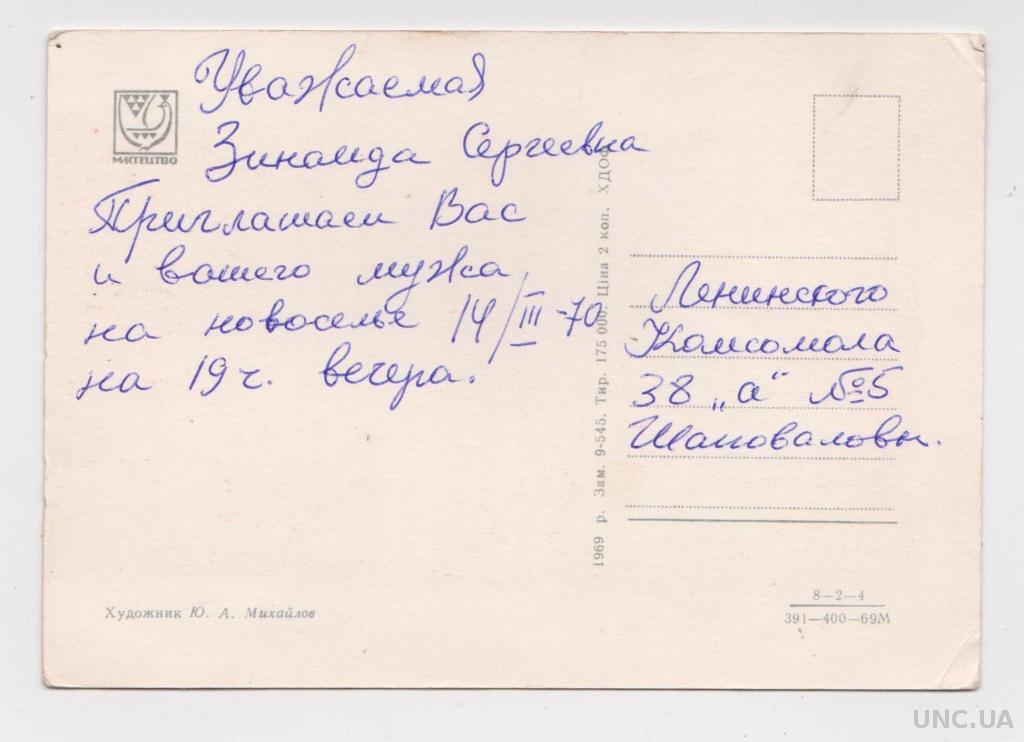 Уважаемая
Зинаида Сергеевна
Приглашаем Вас
и вашего мужа
на новоселье 14/III-70
на 19 ч. вечера.
МИСТЕЦТВО
Ленинского
Комсомола
38 „а“ №5
Шаповаловы.
1969 р. Зам. 9-545. Тир. 175 000. Ціна 2 коп. ХДОФ
Художник Ю. А. Михайлов
8—2—4
391—400—69М
UNC.UA